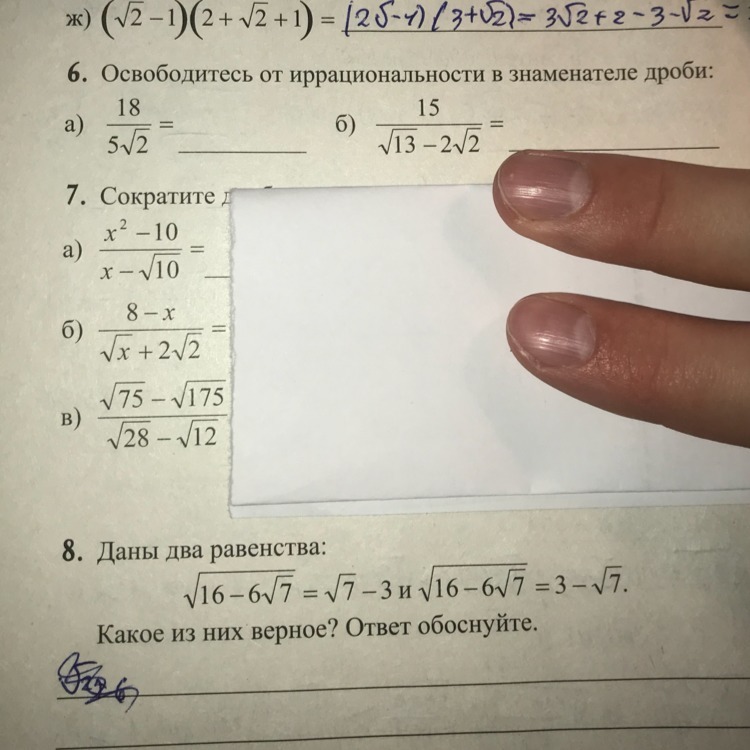 ж) (√2 − 1)(2 + √2 + 1) = (2√-1)(3+√2) = 3√2 + 2 − 3 − √2 =
6. Освободитесь от иррациональности в знаменателе дроби:
а) 18/(5√2) = ______ б) 15/(√13 − 2√2) = ______
7. Сократите
а) (x² − 10)/(x − √10) =
б) (8 − x)/(√x + 2√2) =
в) (√75 − √175)/(√28 − √12)
8. Даны два равенства:
√(16 − 6√7) = √7 − 3 и √(16 − 6√7) = 3 − √7.
Какое из них верное? Ответ обоснуйте.